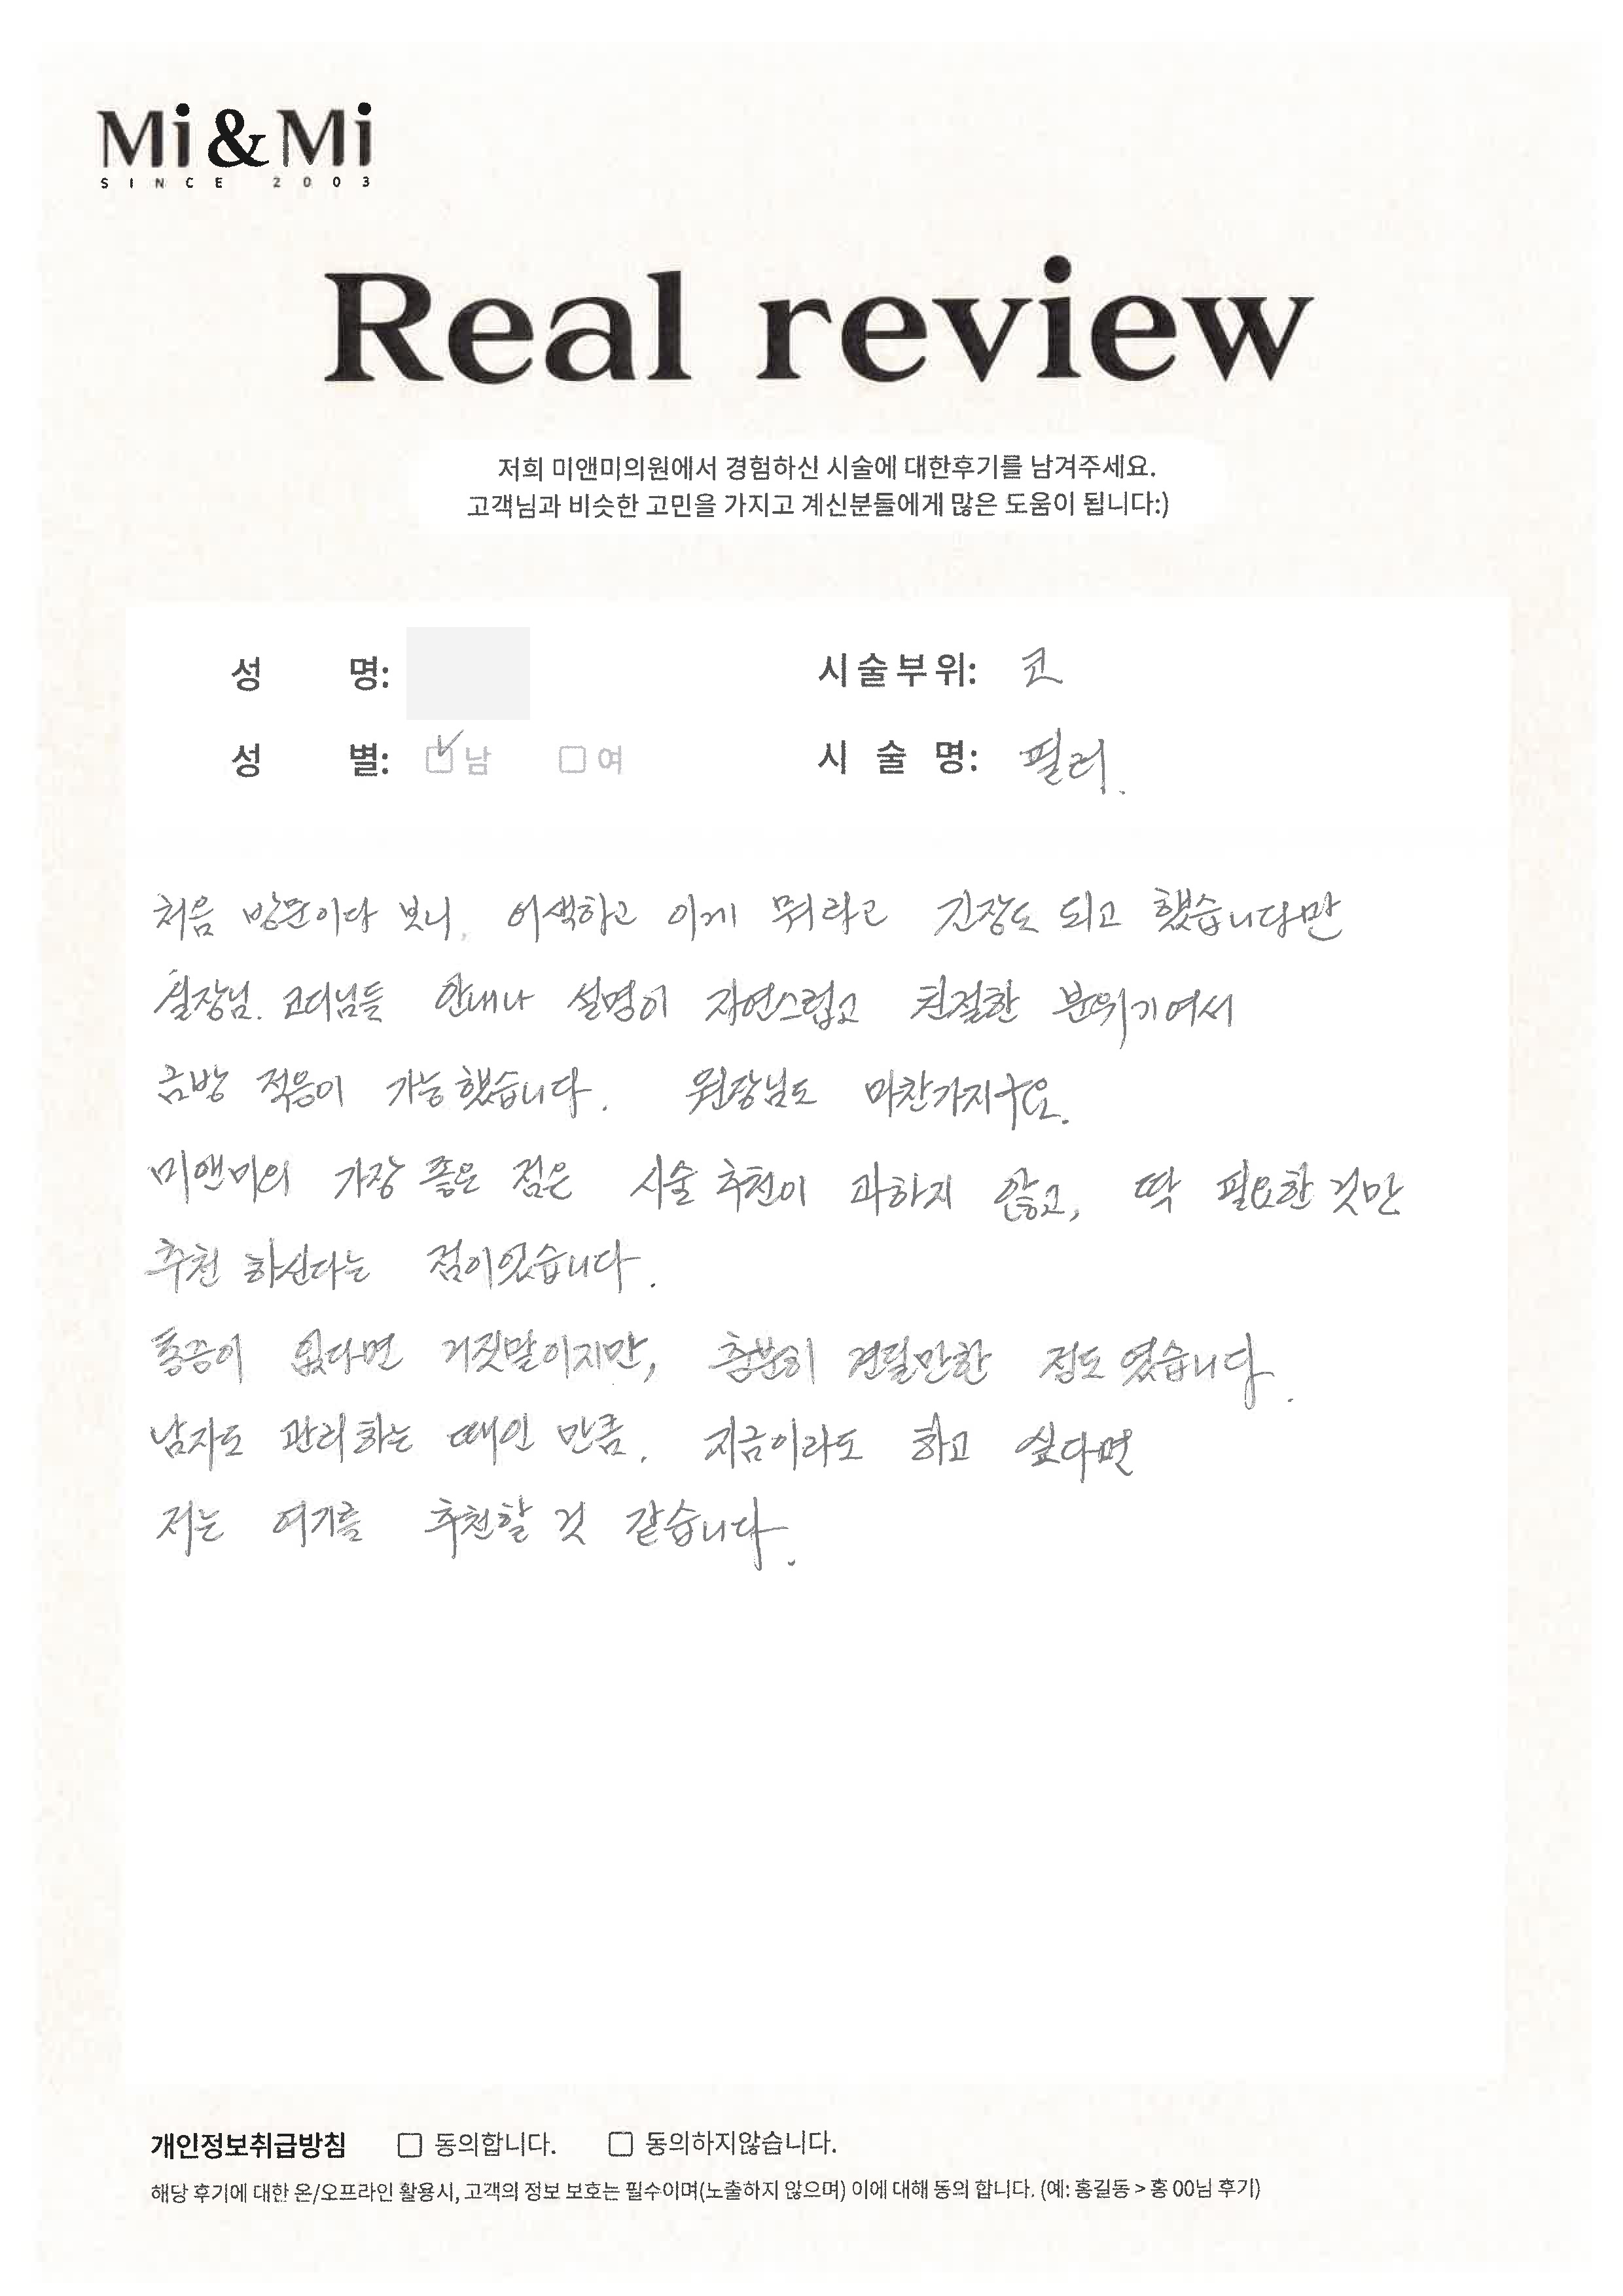 Mi&Mi
SINCE 2003
Real review
저희 미앤미의원에서 경험하신 시술에 대한후기를 남겨주세요.
고객님과 비슷한 고민을 가지고 계신분들에게 많은 도움이 됩니다:)
성 명: 시술부위: 코
성 별: 남 여 시 술 명: 필러.
처음 방문이다 보니, 어색하고 이게 뭐라고 긴장도 되고 했습니다만
실장님. 코디님들 안내나 설명이 자연스럽고 친절한 분위기여서
금방 적응이 가능했습니다. 원장님도 마찬가지구요.
미앤미의 가장 좋은 점은 시술 추천이 과하지 않고, 딱 필요한 것만
추천 하신다는 점이었습니다.
통증이 없다면 거짓말이지만, 충분히 견딜만한 정도였습니다.
남자도 관리하는 때인 만큼. 지금이라도 하고 싶다면
저는 여기를 추천할 것 같습니다.
개인정보취급방침 동의합니다. 동의하지않습니다.
해당 후기에 대한 온/오프라인 활용시, 고객의 정보 보호는 필수이며(노출하지 않으며) 이에 대해 동의 합니다. (예: 홍길동 > 홍 00님 후기)